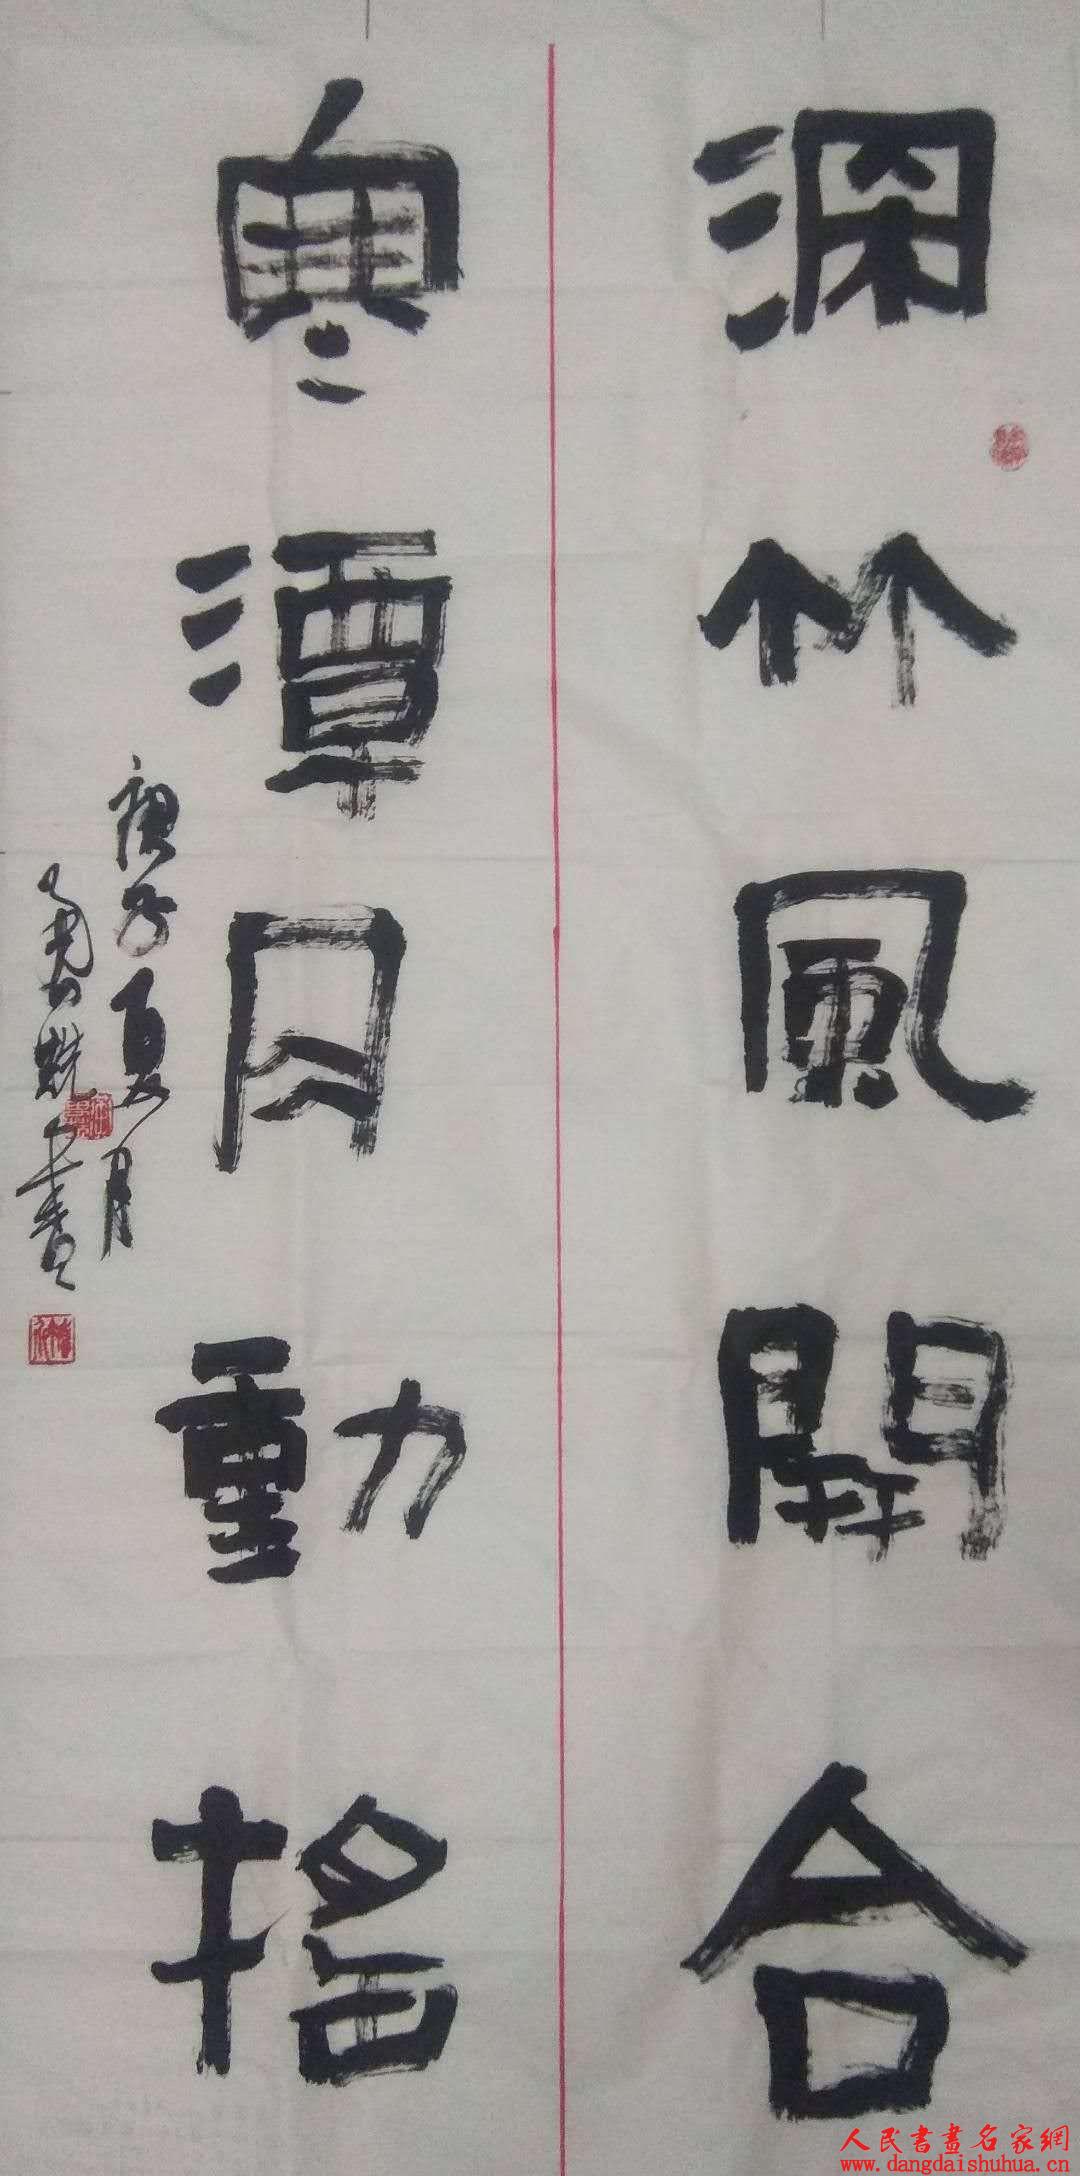 深竹風開合
寒潭月動搖
庚子夏月
書
人民書畫名家網
www.dangdaishuhua.cn